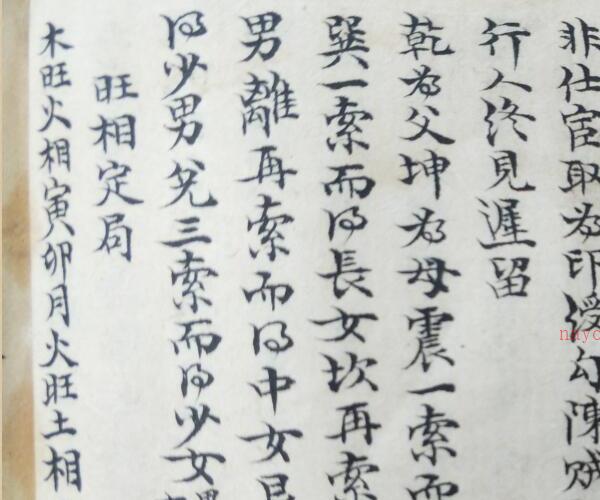 非仕宦取為印綬勾陳
行人終見遲留
乾為父坤為母震一索而
巽一索而得長女坎再索
男離再索而得中女艮
得少男兌三索而得少女
旺相定局
木旺火相寅卯月火旺土相